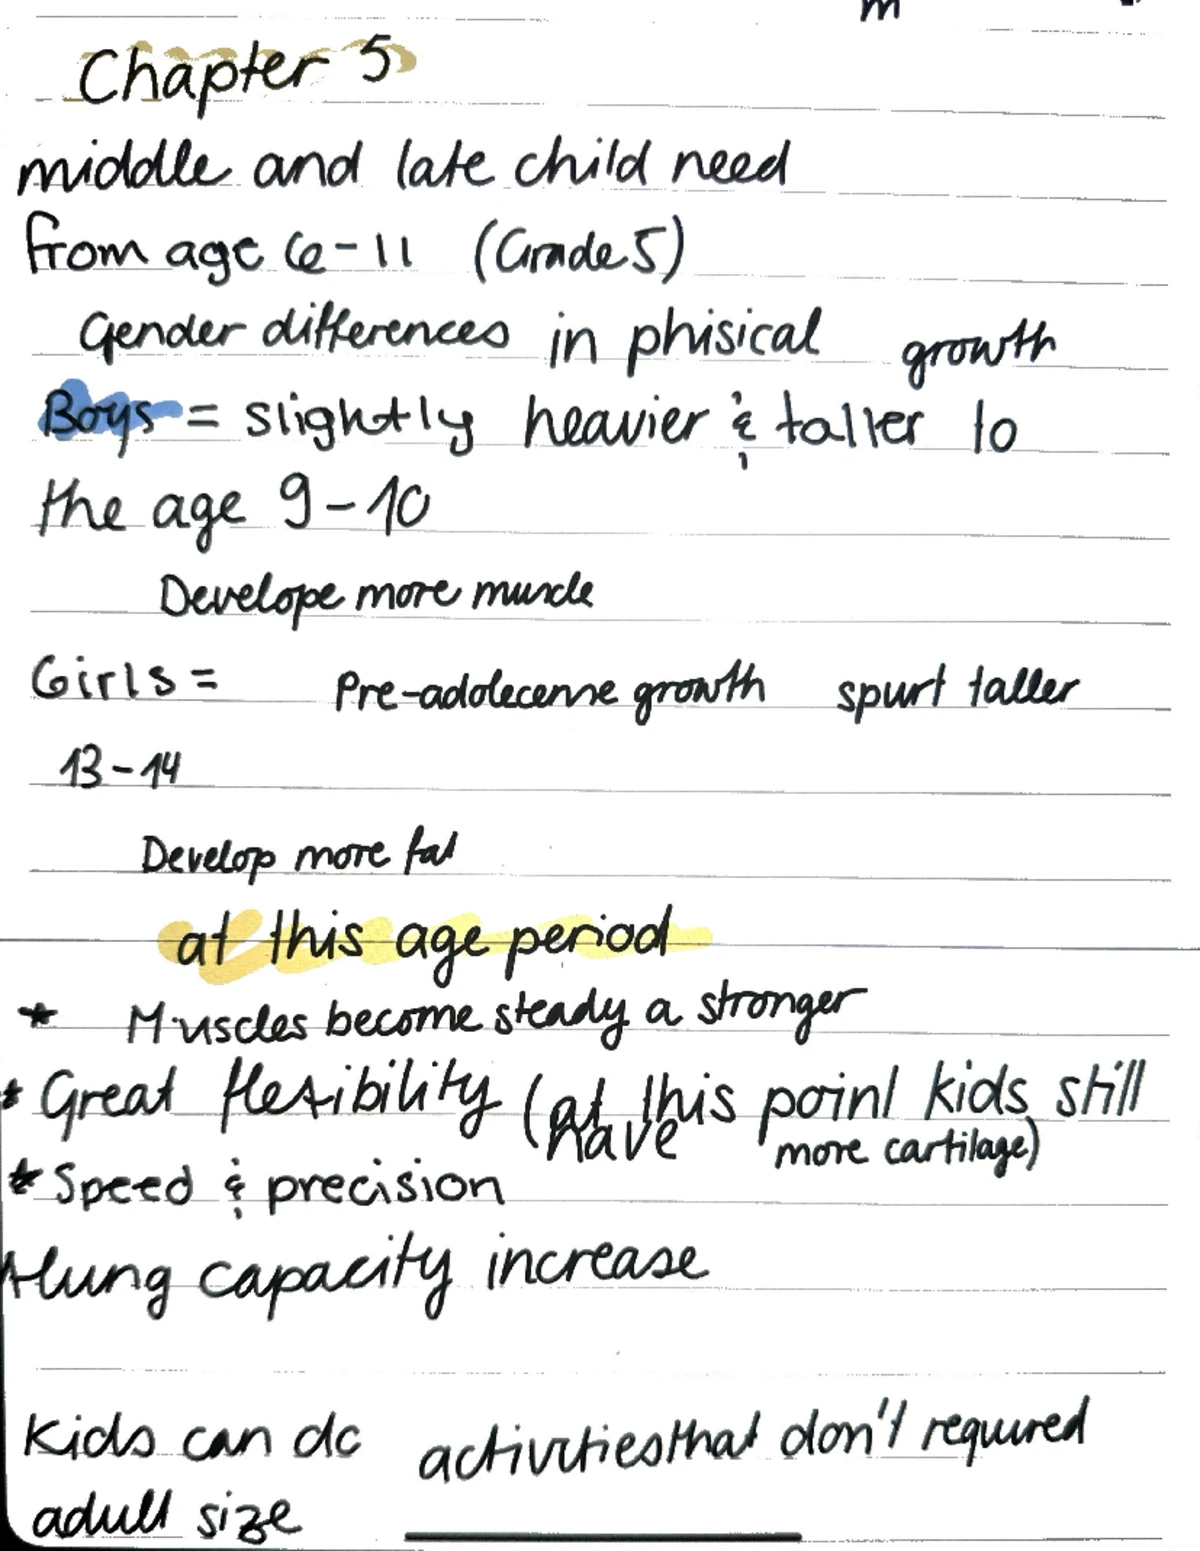 m
Chapter 5
middle and late child need
from age 6-11 (Grade 5)
Gender differences in phisical growth
Boys = slightly heavier & taller to
the age 9-10
Develope more muscle
Girls = Pre-adolecense growth spurt taller
13-14
Develop more fat
at this age period
* Muscles become steady a stronger
* Great flexibility (at this point kids still
have more cartilage)
* Speed & precision
* lung capacity increase
Kids can do activities that don't required
adult size